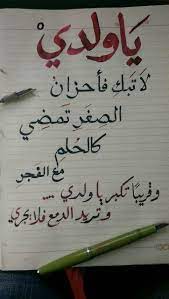 يا ولدي
لا تبك فأحزان
الصغر تمضي
كالحلم
مع الفجر
وقريبًا تكبر يا ولدي ....
وتريد الدمع فلا يجري